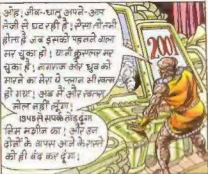 ओह! जीव-धातु अपने-आप
तेजी से घट रही है! ऐसा तो तभी
होता है जब इसको पहनने वाला
मर चुका हो! यानी क्रूरपाशा मर
चुका है! नागराज और ध्रुव को
मारने का मेरा ये प्लान भी खत्म
हो गया! अब मैं और खतरा
मोल नहीं लूंगा!
1945 से संपर्क तोड़ दूंगा
मशीन का! और उन
दोनों के वापस आने के रास्ते
को ही बंद कर दूंगा!
2001